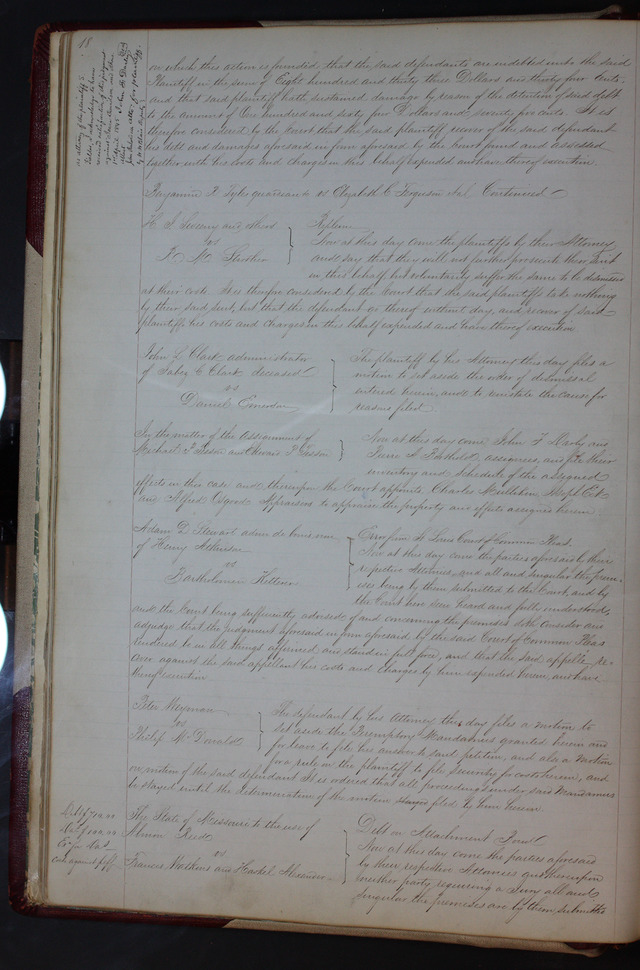 18
on which this action is founded, that the said defendants are indebted unto the said
Plaintiff in the sum of Eight hundred and thirty three Dollars and thirty four Cents.
and that said plaintiff hath sustained damage by reason of the detention of said debt
to the amount of One hundred and sixty four Dollars and seventy five cents. It is
therefore considered by the Court that the said plaintiff recover of the said defendant
his debt and damages aforesaid in form aforesaid by the Court found and assessed
together with his costs and charges in this behalf expended and have thereof execution.
Benjamin F. vs Elizabeth C Ferguson Continued
H. S. and others
vs
Replevin
Now at this day come the plaintiffs by their Attorney
and say that they will not further prosecute their suit
in this behalf but voluntarily suffer the same to be dismissed
at their costs. It is therefore considered by the Court that the said plaintiffs take nothing
by their said suit, but that the defendant go thereof without day, and recover of said
plaintiffs his costs and charges in this behalf expended and have thereof execution
John L Clark administrator
of C Clark deceased
vs
Daniel
The plaintiff by his Attorney this day files a
motion to set aside the order of dismissal
entered herein, and to reinstate the cause for
reasons filed.
In the matter of the Assignment of
Michael and Edward
Now at this day come John F Darby and
assignees, and file their
inventory and schedule of the assigned
effects in this case and thereupon the Court appoints Charles
and Alfred Osgood Appraisers to appraise the property and effects assigned herein
Adam D. Steuart admr de bonis non
of Henry Atkinson
vs
Bartholomew
Error from St Louis Court of Common Pleas.
Now at this day come the parties aforesaid by their
respective Attornies, and all and singular the prem-
ises being by them submitted to the Court, and by
the Court here seen heard and fully understood,
and the Court being sufficiently advised of and concerning the premises doth consider and
adjudge that the judgment aforesaid in form aforesaid by the said Court of Common Pleas
rendered be in all things affirmed and stand in full force, and that the said appellee re-
cover against the said appellant his costs and charges by him expended herein and have
thereof execution
Peter
vs
Philip McDonald
The defendant by his Attorney this day files a motion to
set aside the Peremptory Mandamus granted herein and
for leave to file his answer to said petition, and also a motion
for a rule on the plaintiff to file security for costs herein, and
on motion of the said defendant It is ordered that all proceedings under said Mandamus
be stayed until the determination of the motion filed by him herein.
The State of Missouri to the use of
Almon
vs
Frances Watkins and Alexander
Debt on Attachment Bond
Now at this day come the parties aforesaid
by their respective Attornies and thereupon
neither party requiring a Jury all and
singular the premises are by them submitted